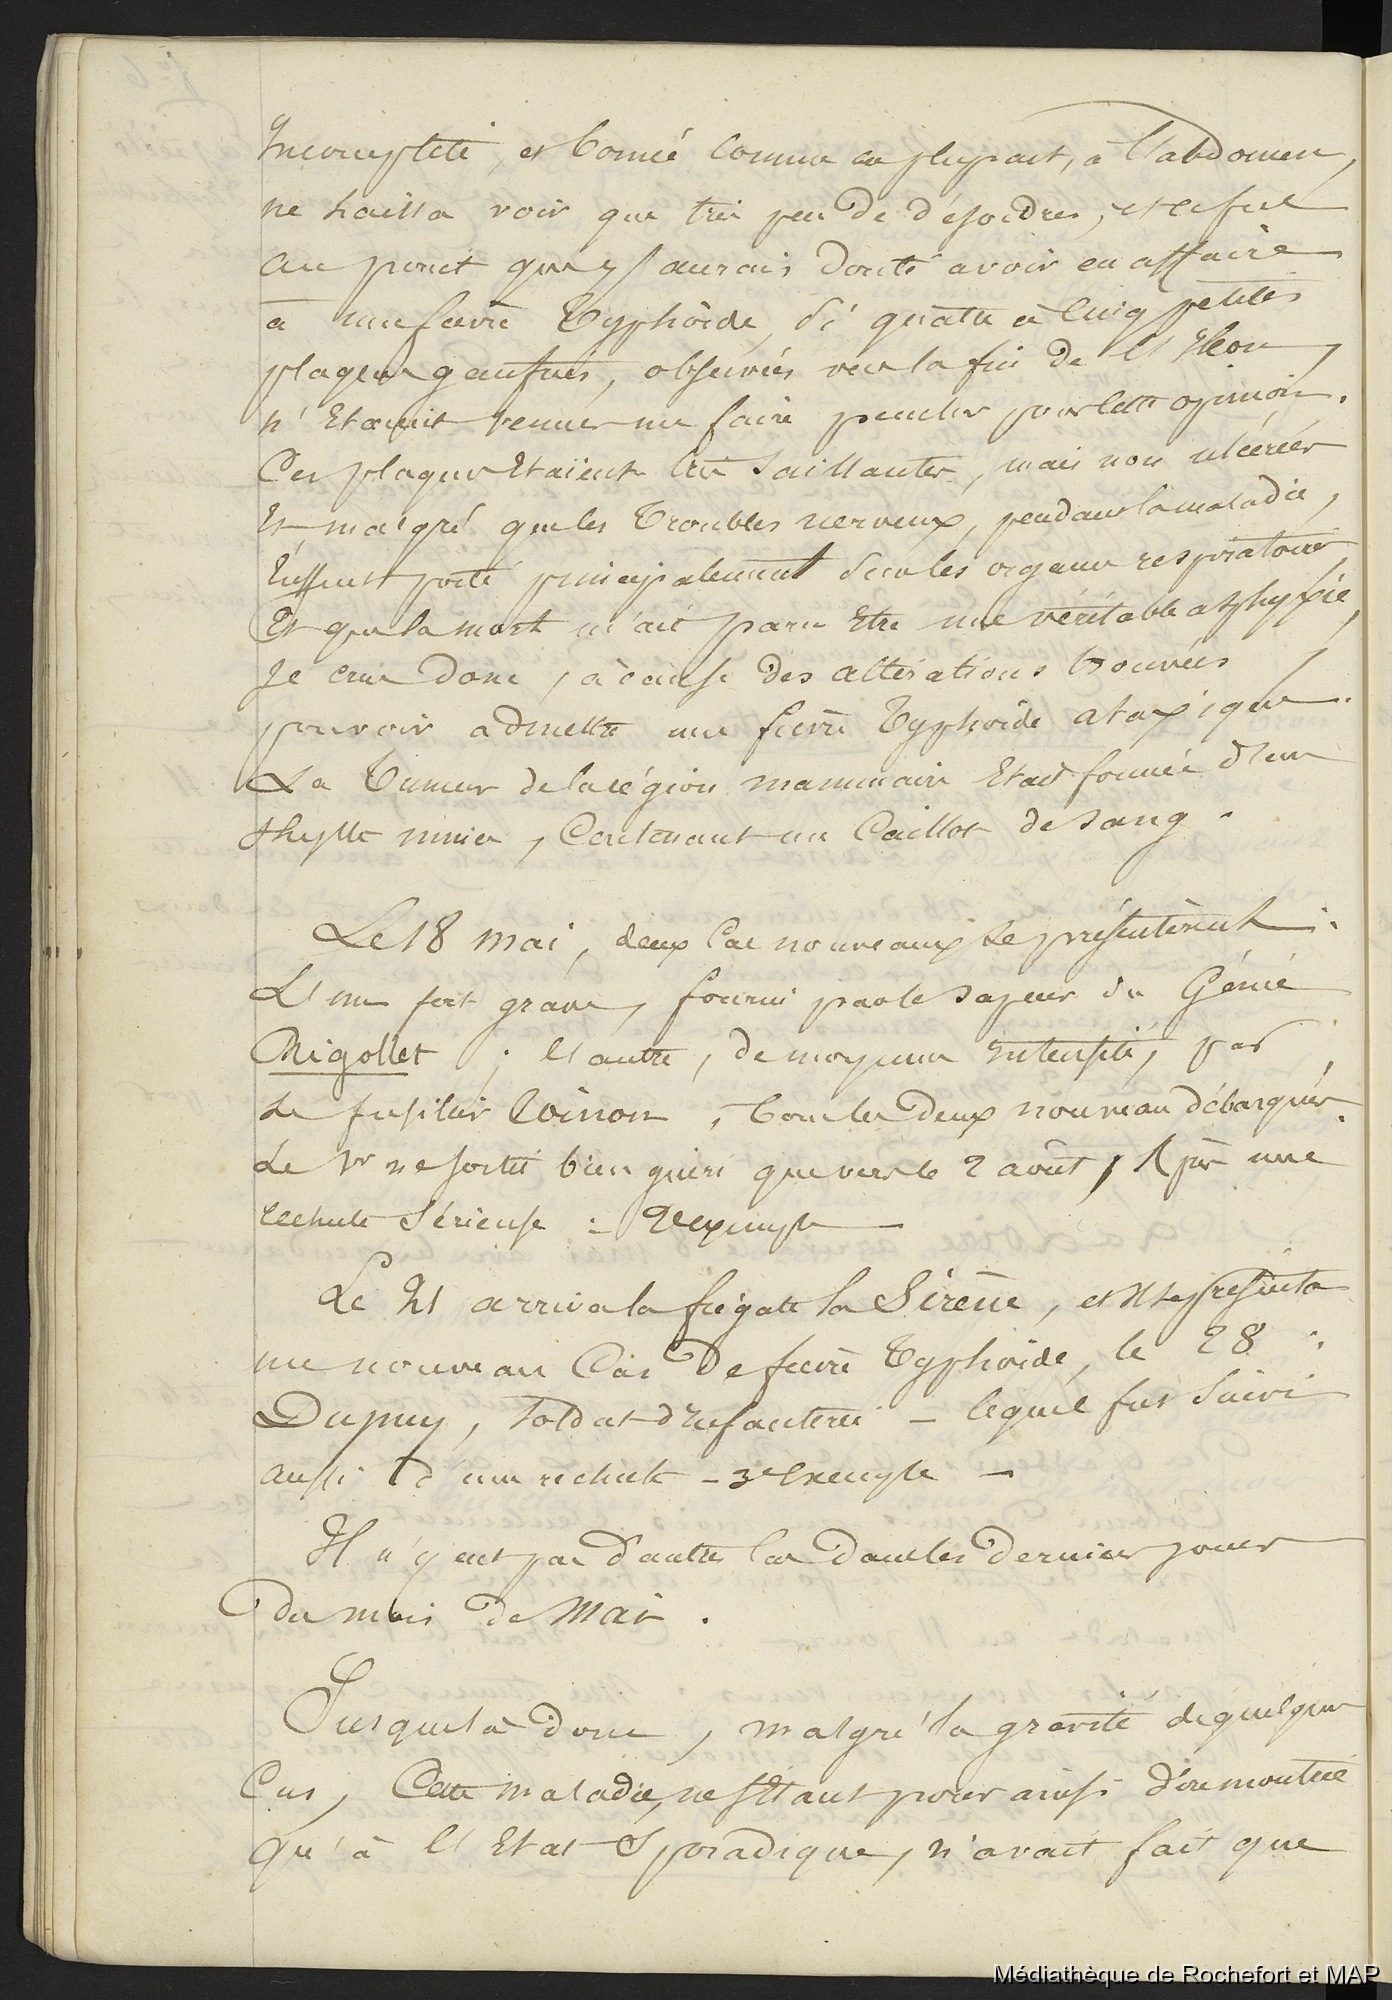 Incomplète, et bornée comme la plupart, à l'abdomen,
ne laissa voir que très peu de désordres, et ce fut
au point que j'aurais douté avoir eu affaire
à une fièvre Typhoïde, si quatre à cinq petites
plaques gaufrées, observées vers la fin de l'Iléon,
n'étaient venues me faire pencher pour cette opinion.
Ces plaques étaient très saillantes, mais non ulcérées
Et malgré que les troubles nerveux, pendant la maladie,
Eussent porté principalement sur les organes respiratoires,
Et que la mort m'ait paru Etre une véritable asphyxie,
Je crus donc, à cause des altérations trouvées,
pouvoir admettre une fièvre Typhoïde ataxique.
La tumeur de la région mammaire Etait formée d'un
Kyste mince, Contenant un Caillot de sang.
Le 18 mai, deux Cas nouveaux se présentèrent :
L'un fort grave, fourni par le sapeur du Génie
Rigollet ; l'autre, de moyenne intensité, par
Le fusilier Coinon, tous les deux nouveau débarqués.
Le 1er ne sortit bien guéri que vers le 2 août, Après une
rechute Sérieuse : 2e exemple —
Le 21 arriva la frégate la Sirène, et Il se présenta
un nouveau Cas De fièvre Typhoïde, le 28 :
Dupuy, Soldat d'infanterie — lequel fut suivi
aussi d'une rechute — 3e Exemple —
Il n'y eut pas d'autres Cas dans les Derniers jours
Du mois De Mai.
Jusque là donc, malgré la gravité de quelques
Cas, Cette maladie, ne s'étant pour ainsi dire montrée
Qu'à l'Etat Sporadique, n'avait fait que
Médiathèque de Rochefort et MAP